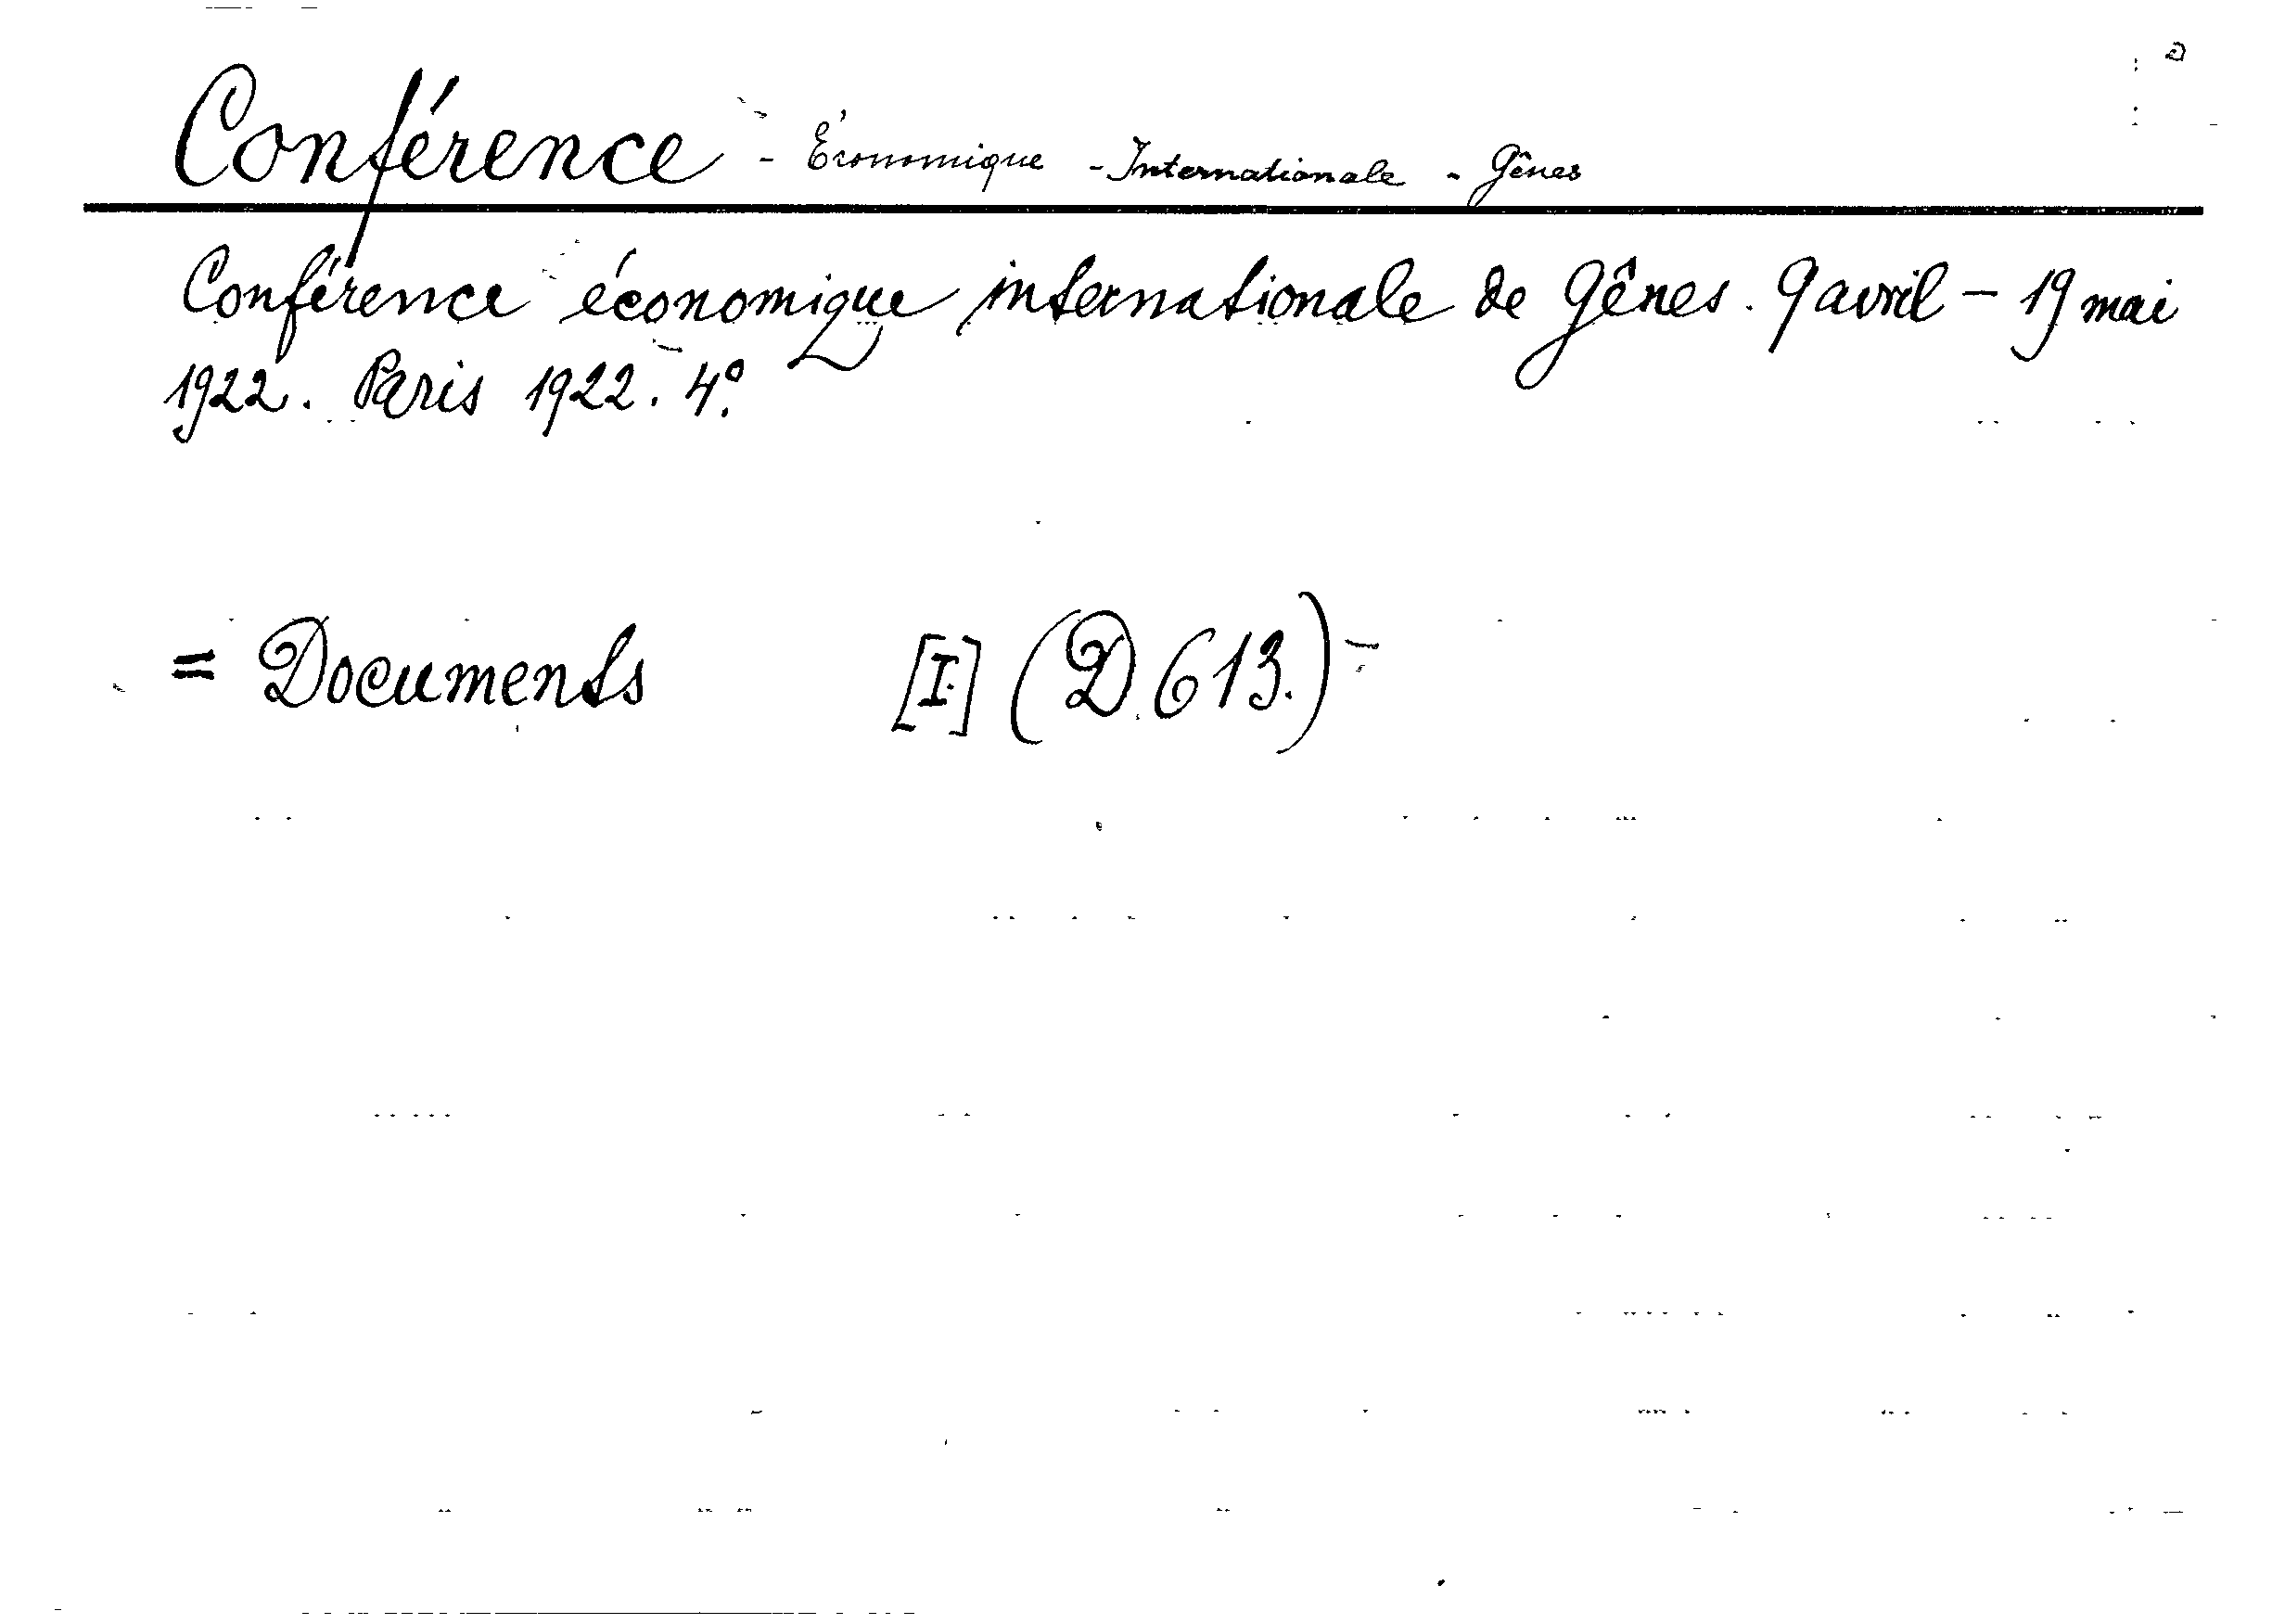 Conférence - Économique - Internationale - Gênes
Conférence économique internationale de Gênes. 9 avril - 19 mai
1922. Paris 1922. 4°.
= Documents [I] (D. 613.)